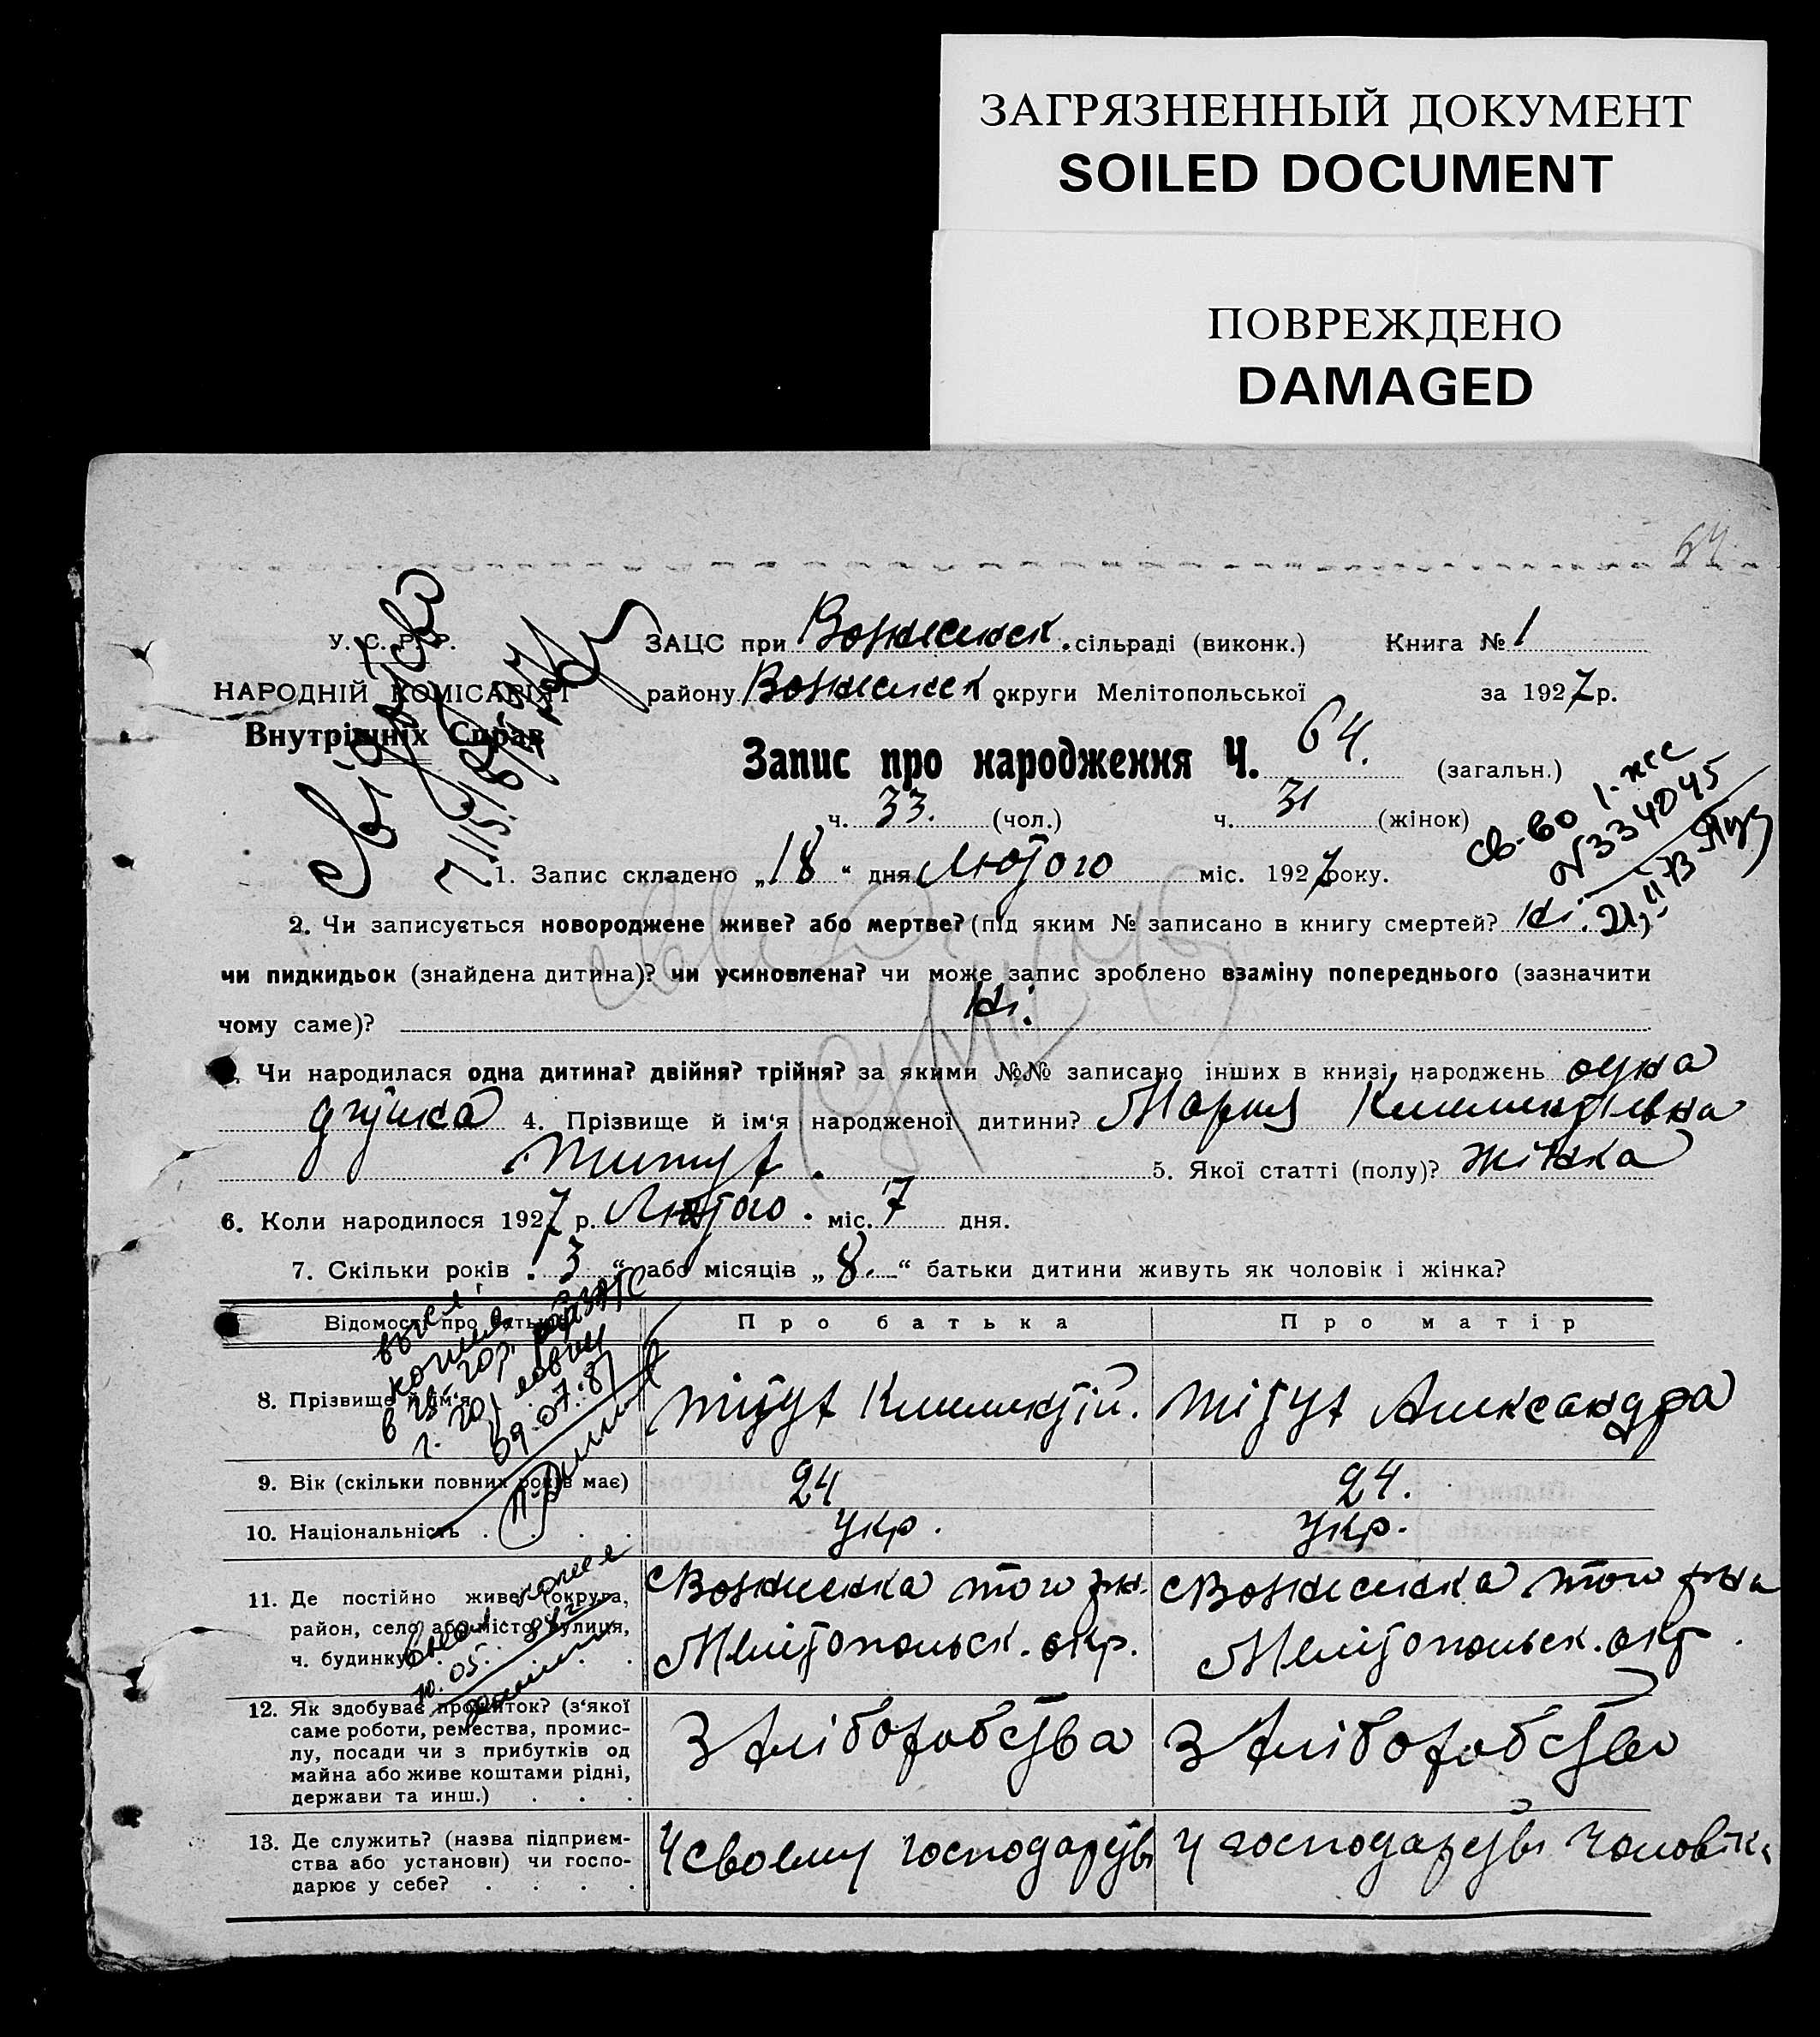 ЗАГРЯЗНЕННЫЙ ДОКУМЕНТ
SOILED DOCUMENT
ПОВРЕЖДЕНО
DAMAGED
64
У. С. Р. Р.
НАРОДНІЙ КОМІСАРІЯТ
Внутрішніх Справ
ЗАЦС при Вознесенск. сільраді (виконк.) Книга № 1
району Вознесенск округи Мелітопольської за 1927 р.
Запис про народження Ч. 64. (загальн.)
ч. 33. (чол.) ч. 31 (жінок)
св-во 1-жс
N 334045
21/II 73
1. Запис складено „18“ дня Лютого міс. 1927 року.
2. Чи записується новороджене живе? або мертве? (під яким № записано в книгу смертей? Ні.
чи пидкидьок (знайдена дитина)? чи усиновлена? чи може запис зроблено взаміну попереднього (зазначити
чому саме)? Ні.
Чи народилася одна дитина? двійня? трійня? за якими №№ записано інших в книзі народжень одна
4. Прізвище й ім'я народженої дитини? Мария Климентіевна
5. Якої статті (полу)? жінка
6. Коли народилося 1927 р. Лютого міс. 7 дня.
7. Скільки років „3“ або місяців „8“ батьки дитини живуть як чоловік і жінка?
Відомості про батьків Про батька Про матір
8. Прізвище й ім'я Тітух Климентій. Тітух Александра
09.07.87
9. Вік (скільки повних років має) 24 24.
10. Національність . . . . укр. укр.
11. Де постійно живе (округа, район, село або місто, вулиця, ч. будинку)
Вознесенка того рн. Мелітопольск. окр.
Вознесенка того р-на Мелітопольск. окр.
12. Як здобуває прожиток? (з'якої
саме роботи, ремества, промис-
лу, посади чи з прибутків од
майна або живе коштами рідні,
держави та инш.) . . .
З хліборобства З хліборобства
13. Де служить? (назва підприєм-
ства або установи) чи госпо-
дарює у себе? . . . .
У своему господарстві У господарстві чоловіка